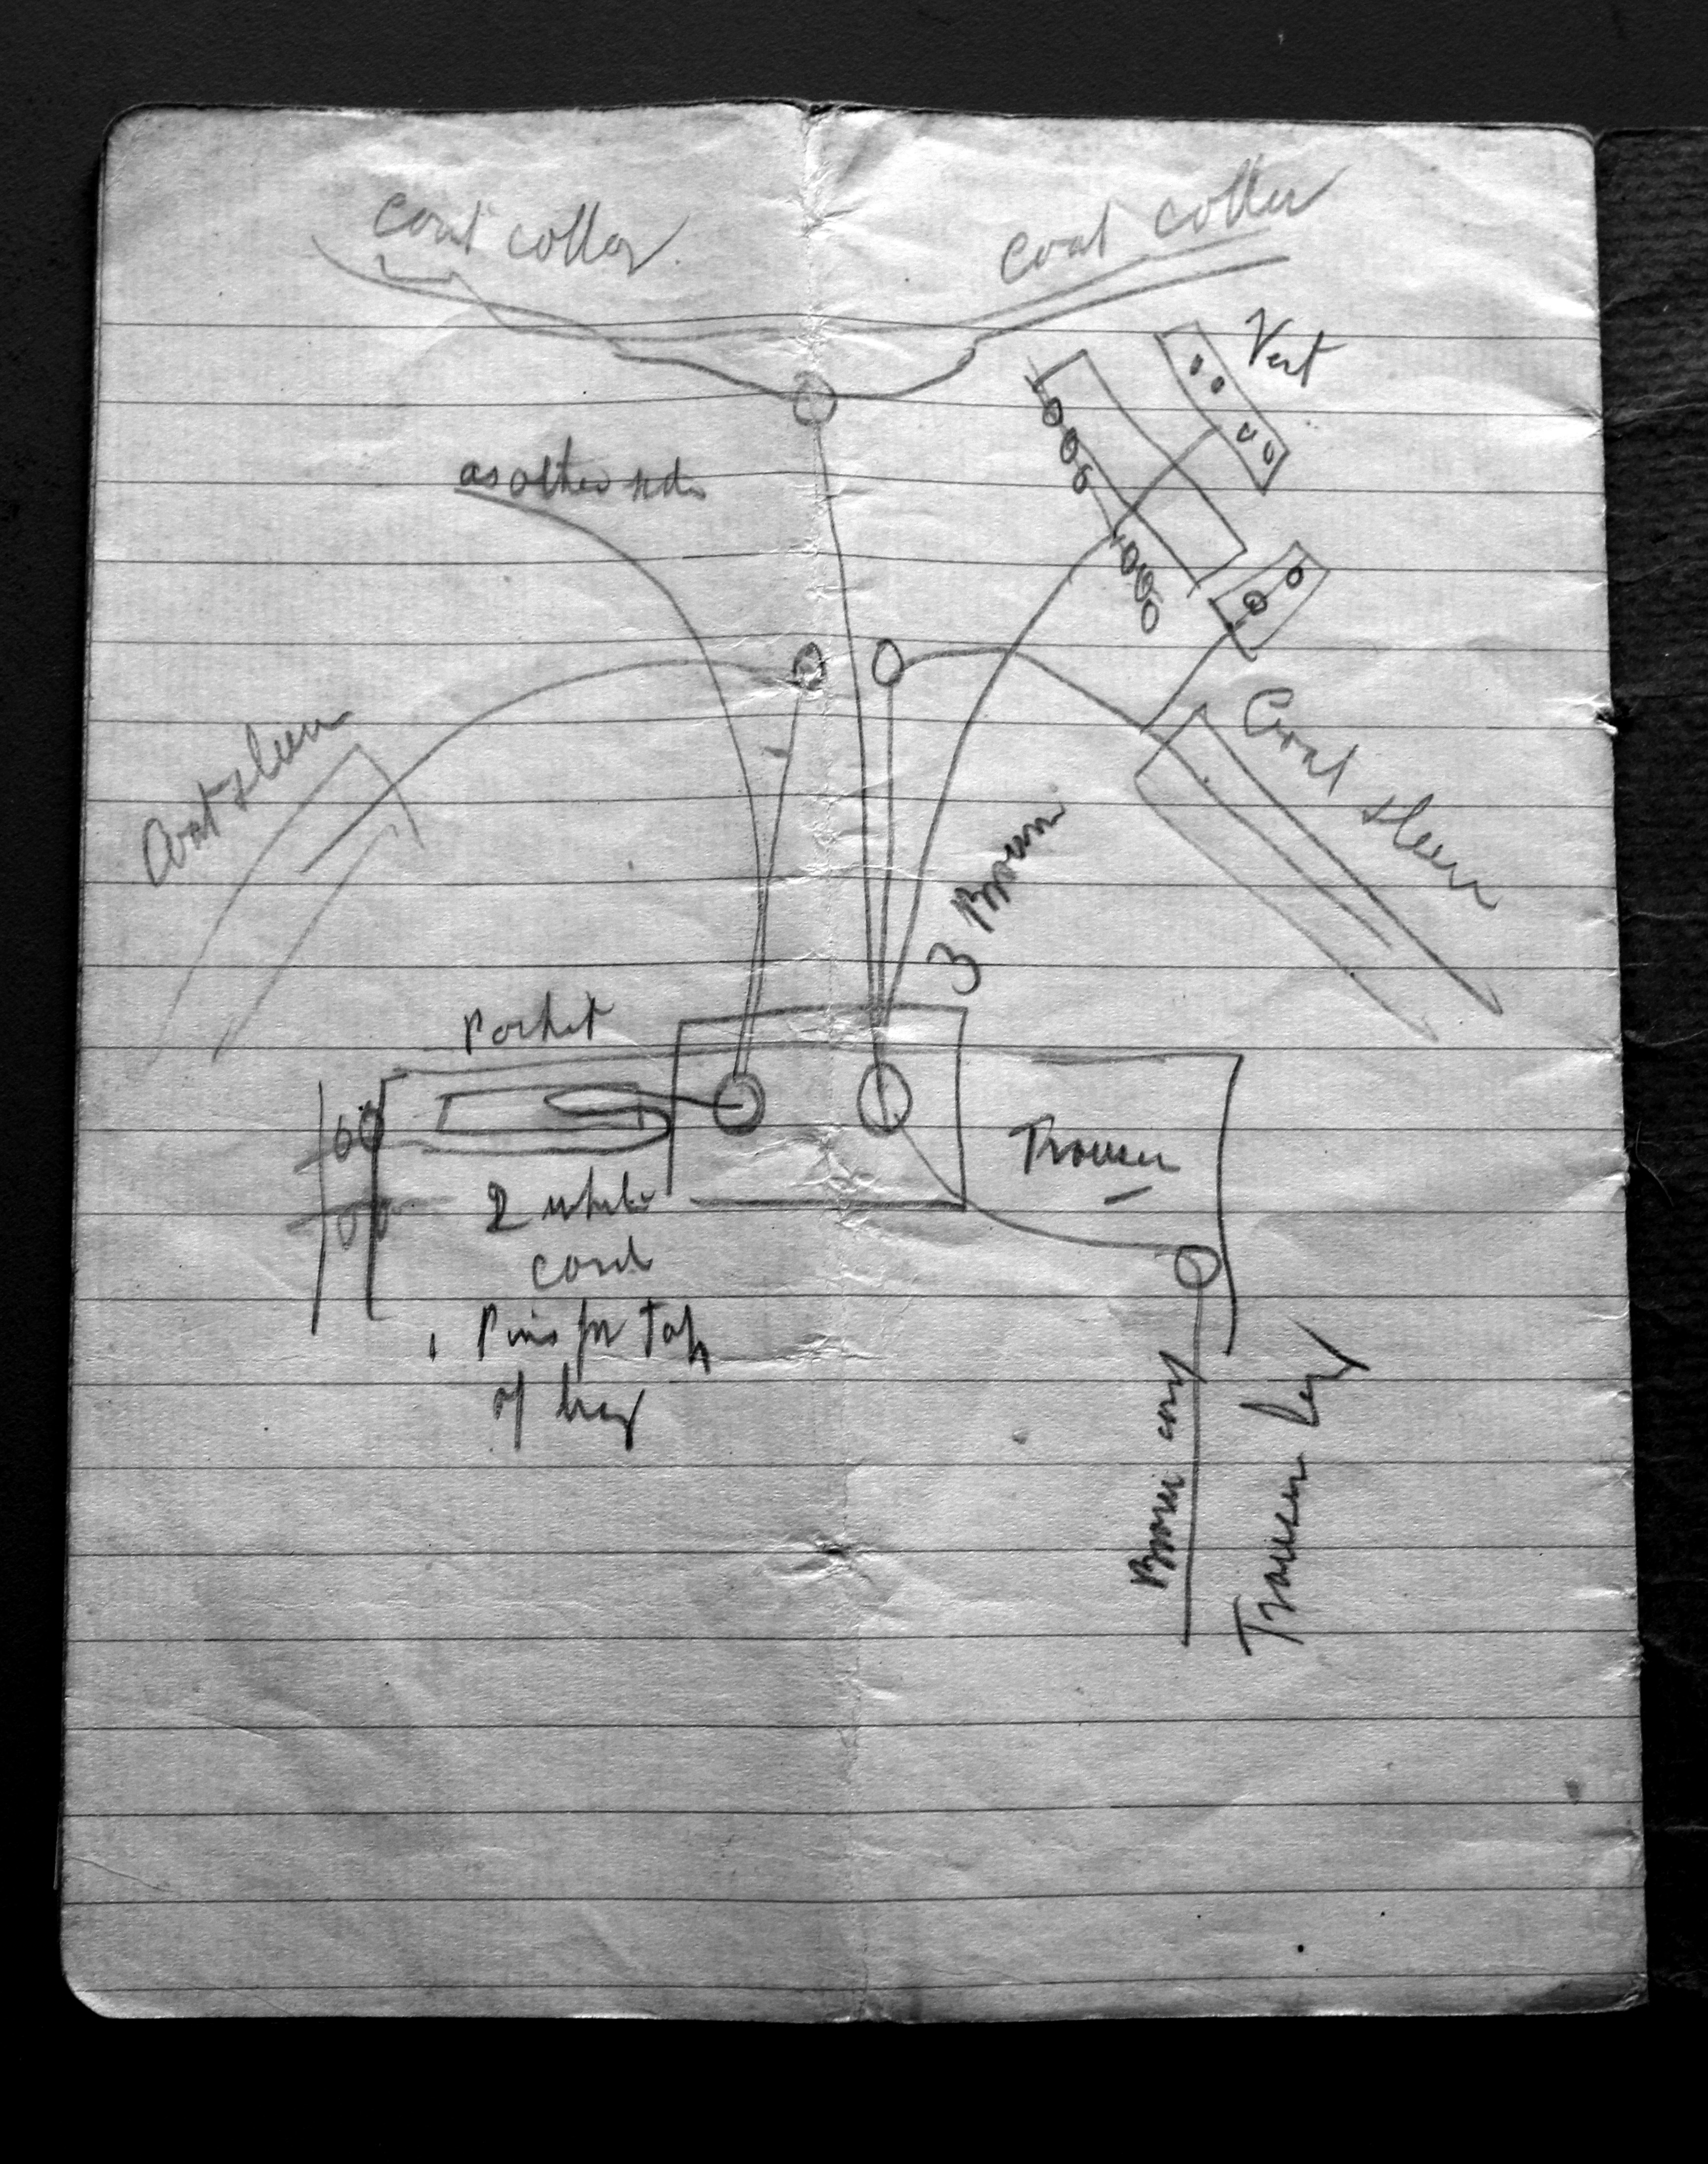 Coat collar
Coat collar
Vest
as other side
Coat sleeve
Coat sleeve
3 Brown
Pocket
Trouser
2 white
cord
Pins for Top
of
Brown cord
Trouser Leg